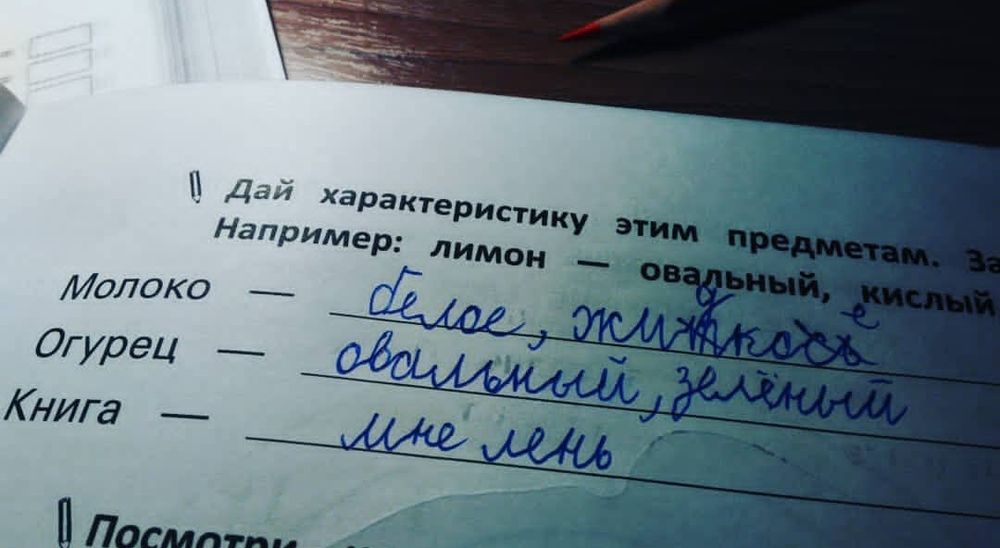 Дай характеристику этим предметам. За
Например: лимон — овальный, кислый,
Молоко — белое, жидкое
Огурец — овальный, зелёный
Книга — мне лень
Посмотри